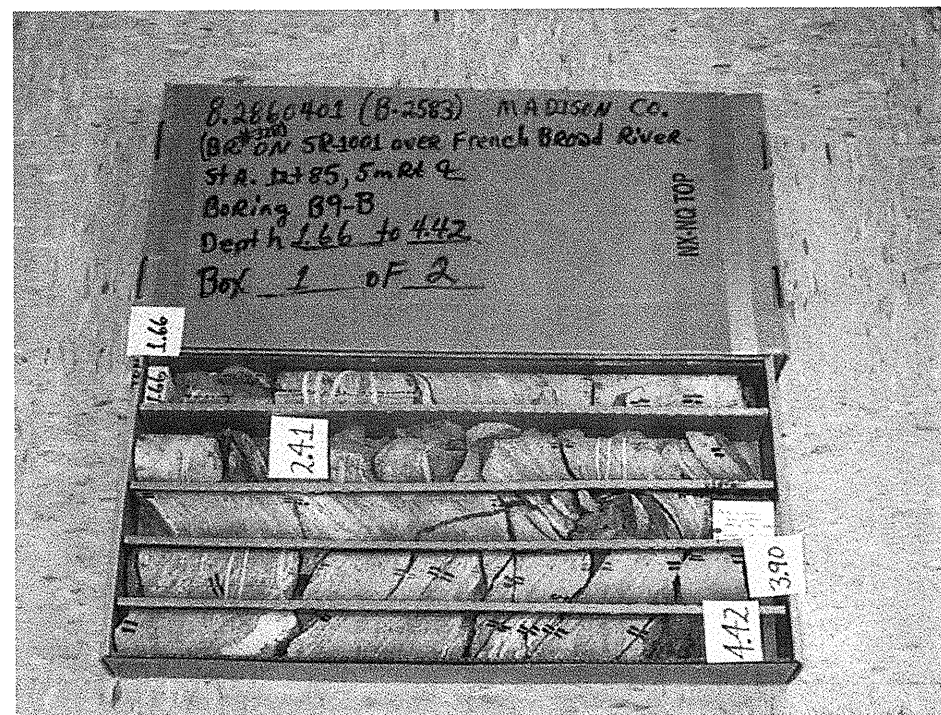 8.2860401 (B-2583) MADISON CO.
(BR# ON SR1001 over French Broad River
StA. 12+85, 5m Rt ℄
Boring B9-B
Depth 1.66 to 4.42
Box 1 of 2
NX-NQ TOP
1.66
1.66
2.41
3.90
4.42